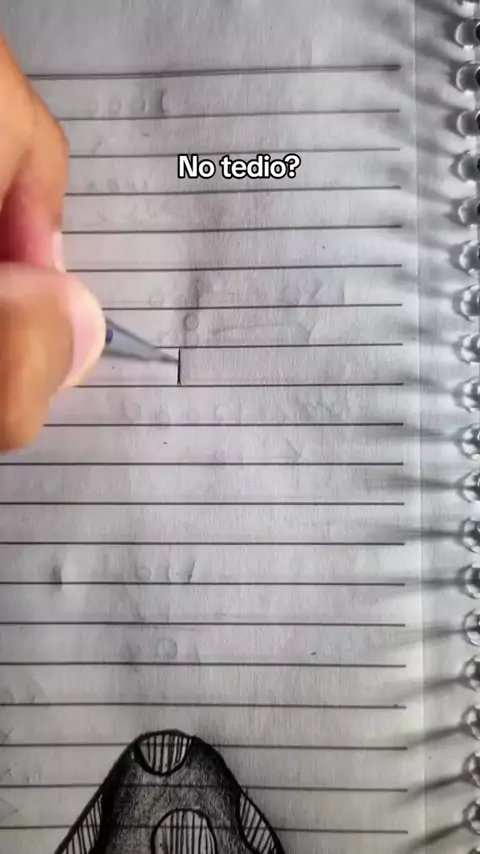 No tedio?